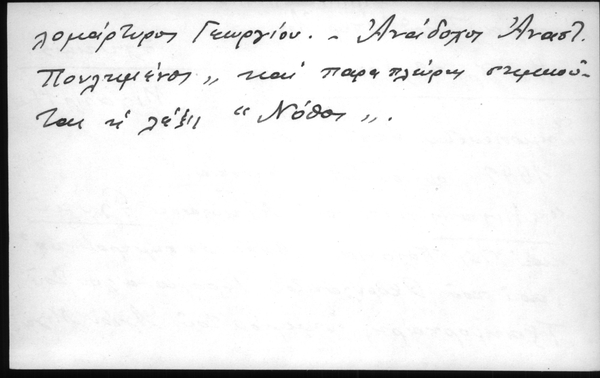 λομάρτυρος Γεωργίου. – Ἀνάδοχος Ἀναστ.
„ καὶ παραπλεύρως σημειοῦ-
ται ἡ λέξις “Νόθος„.